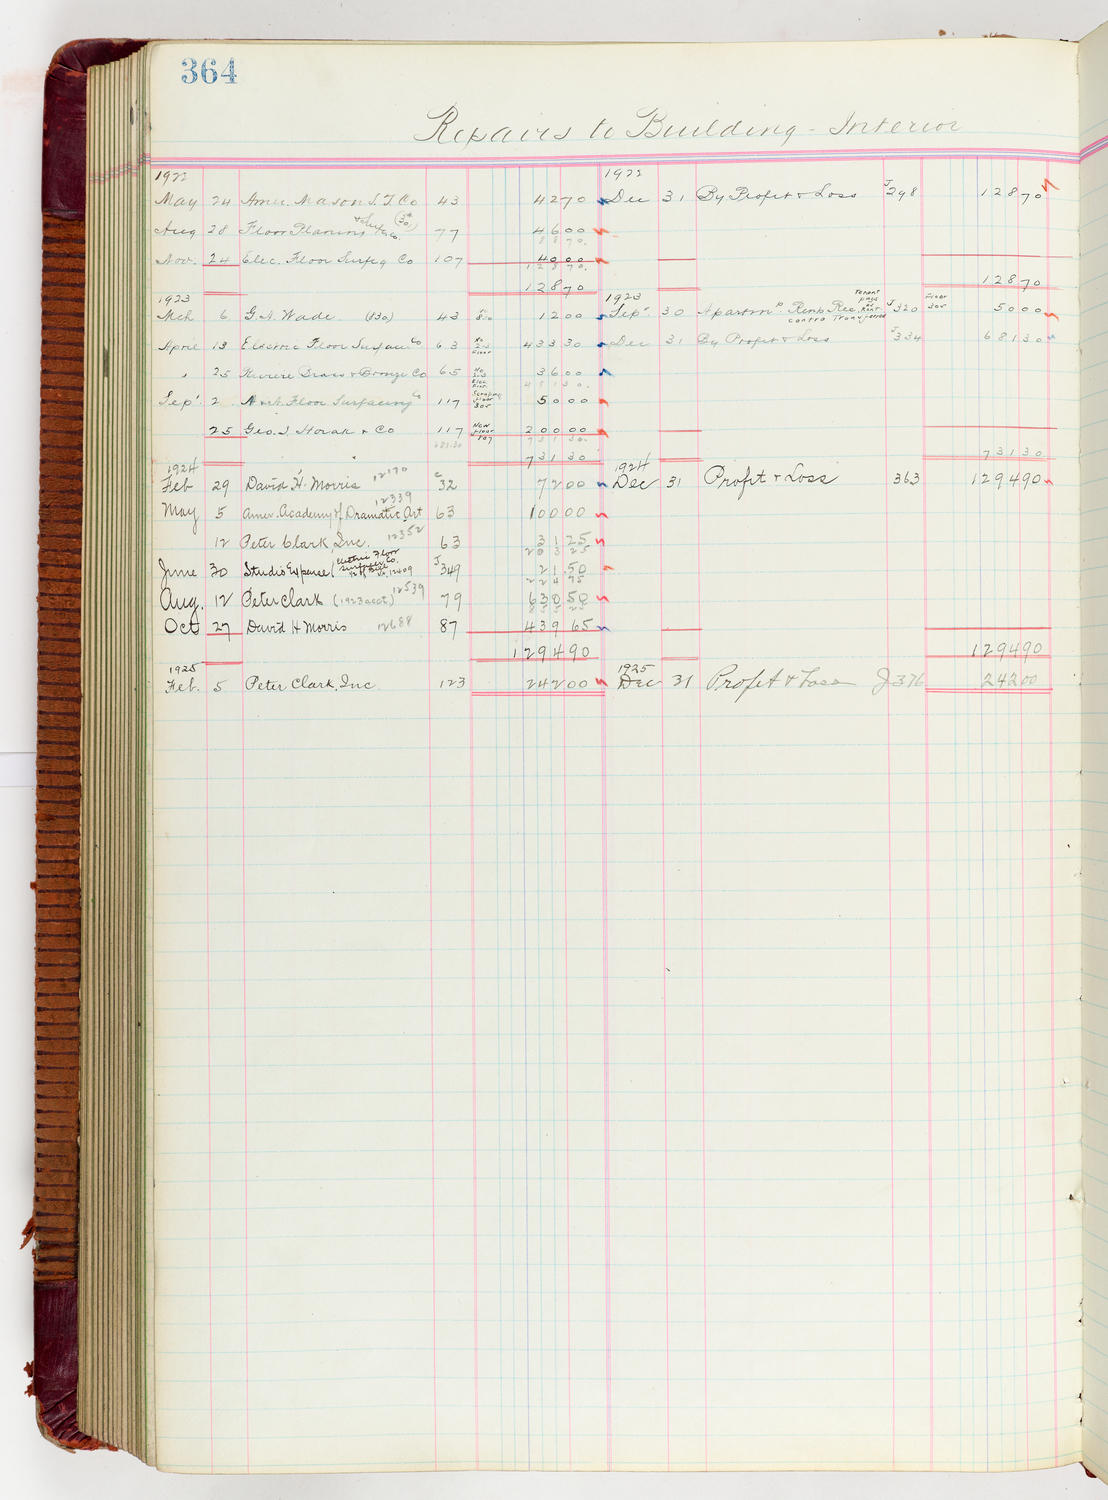 364
Repairs to Building - Interior
1922
May 24 Amer. Mason S. T Co 43 42 70
Aug 28 Floor Planing & Surfg Co. 77 46 00
88 70.
Nov. 24 Elec. Floor Surfcg Co 107 40 00
128 70.
128 70
1923
Mch 6 G. A. Wade (830) 43 12 00
April 13 Electric Floor Surfac Co 63 433 30
" 25 Revere Brass & Bronze Co 65 36 00
481 30.
Sep' 2 Floor Surfacing Co 117 Scraping Floor 305 50 00
25 Geo. J. & Co 117 New Floor 107 200 00
731 30.
681.30
731 30
1924
Feb 29 David H. Morris 12170 C 32 72 00
May 5 Amer. Academy of Dramatic Art 12339 63 100 00
12 Peter Clark, Inc. 12352 63 31 25
203 25
June 30 Studio Expense (Electric Floor Surfacing Co. 12409 J 349 21.50
224 75
Aug. 12 Peter Clark (1923 acct) 12539 79 630 50
855 25
Oct 27 David H Morris 12688 87 439 65
1294 90
1925
Feb. 5 Peter Clark, Inc 123 242 00
1922
Dec 31 By Profit & Loss J 298 128 70
128 70
1923
Sep' 30 Apartm' Rent Rec. contra Transferred Tenant pays as Rent J 320 Floor 305 50 00
Dec 31 By Profit & Loss J 334 681 30
731 30
1924
Dec 31 Profit & Loss 363 1294 90
1294 90
1925
Dec 31 Profit & Loss J 376 242 00